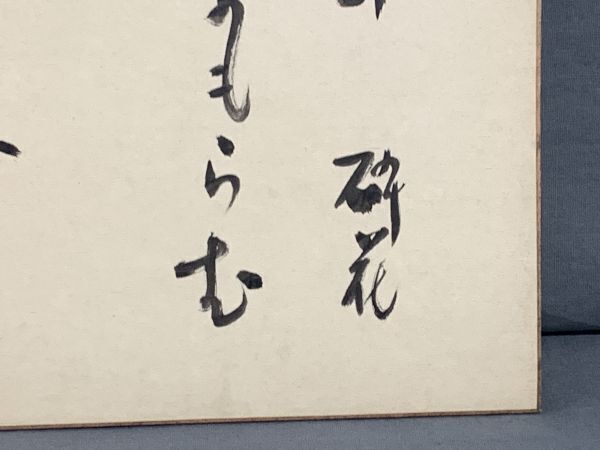 砕花
もらむ